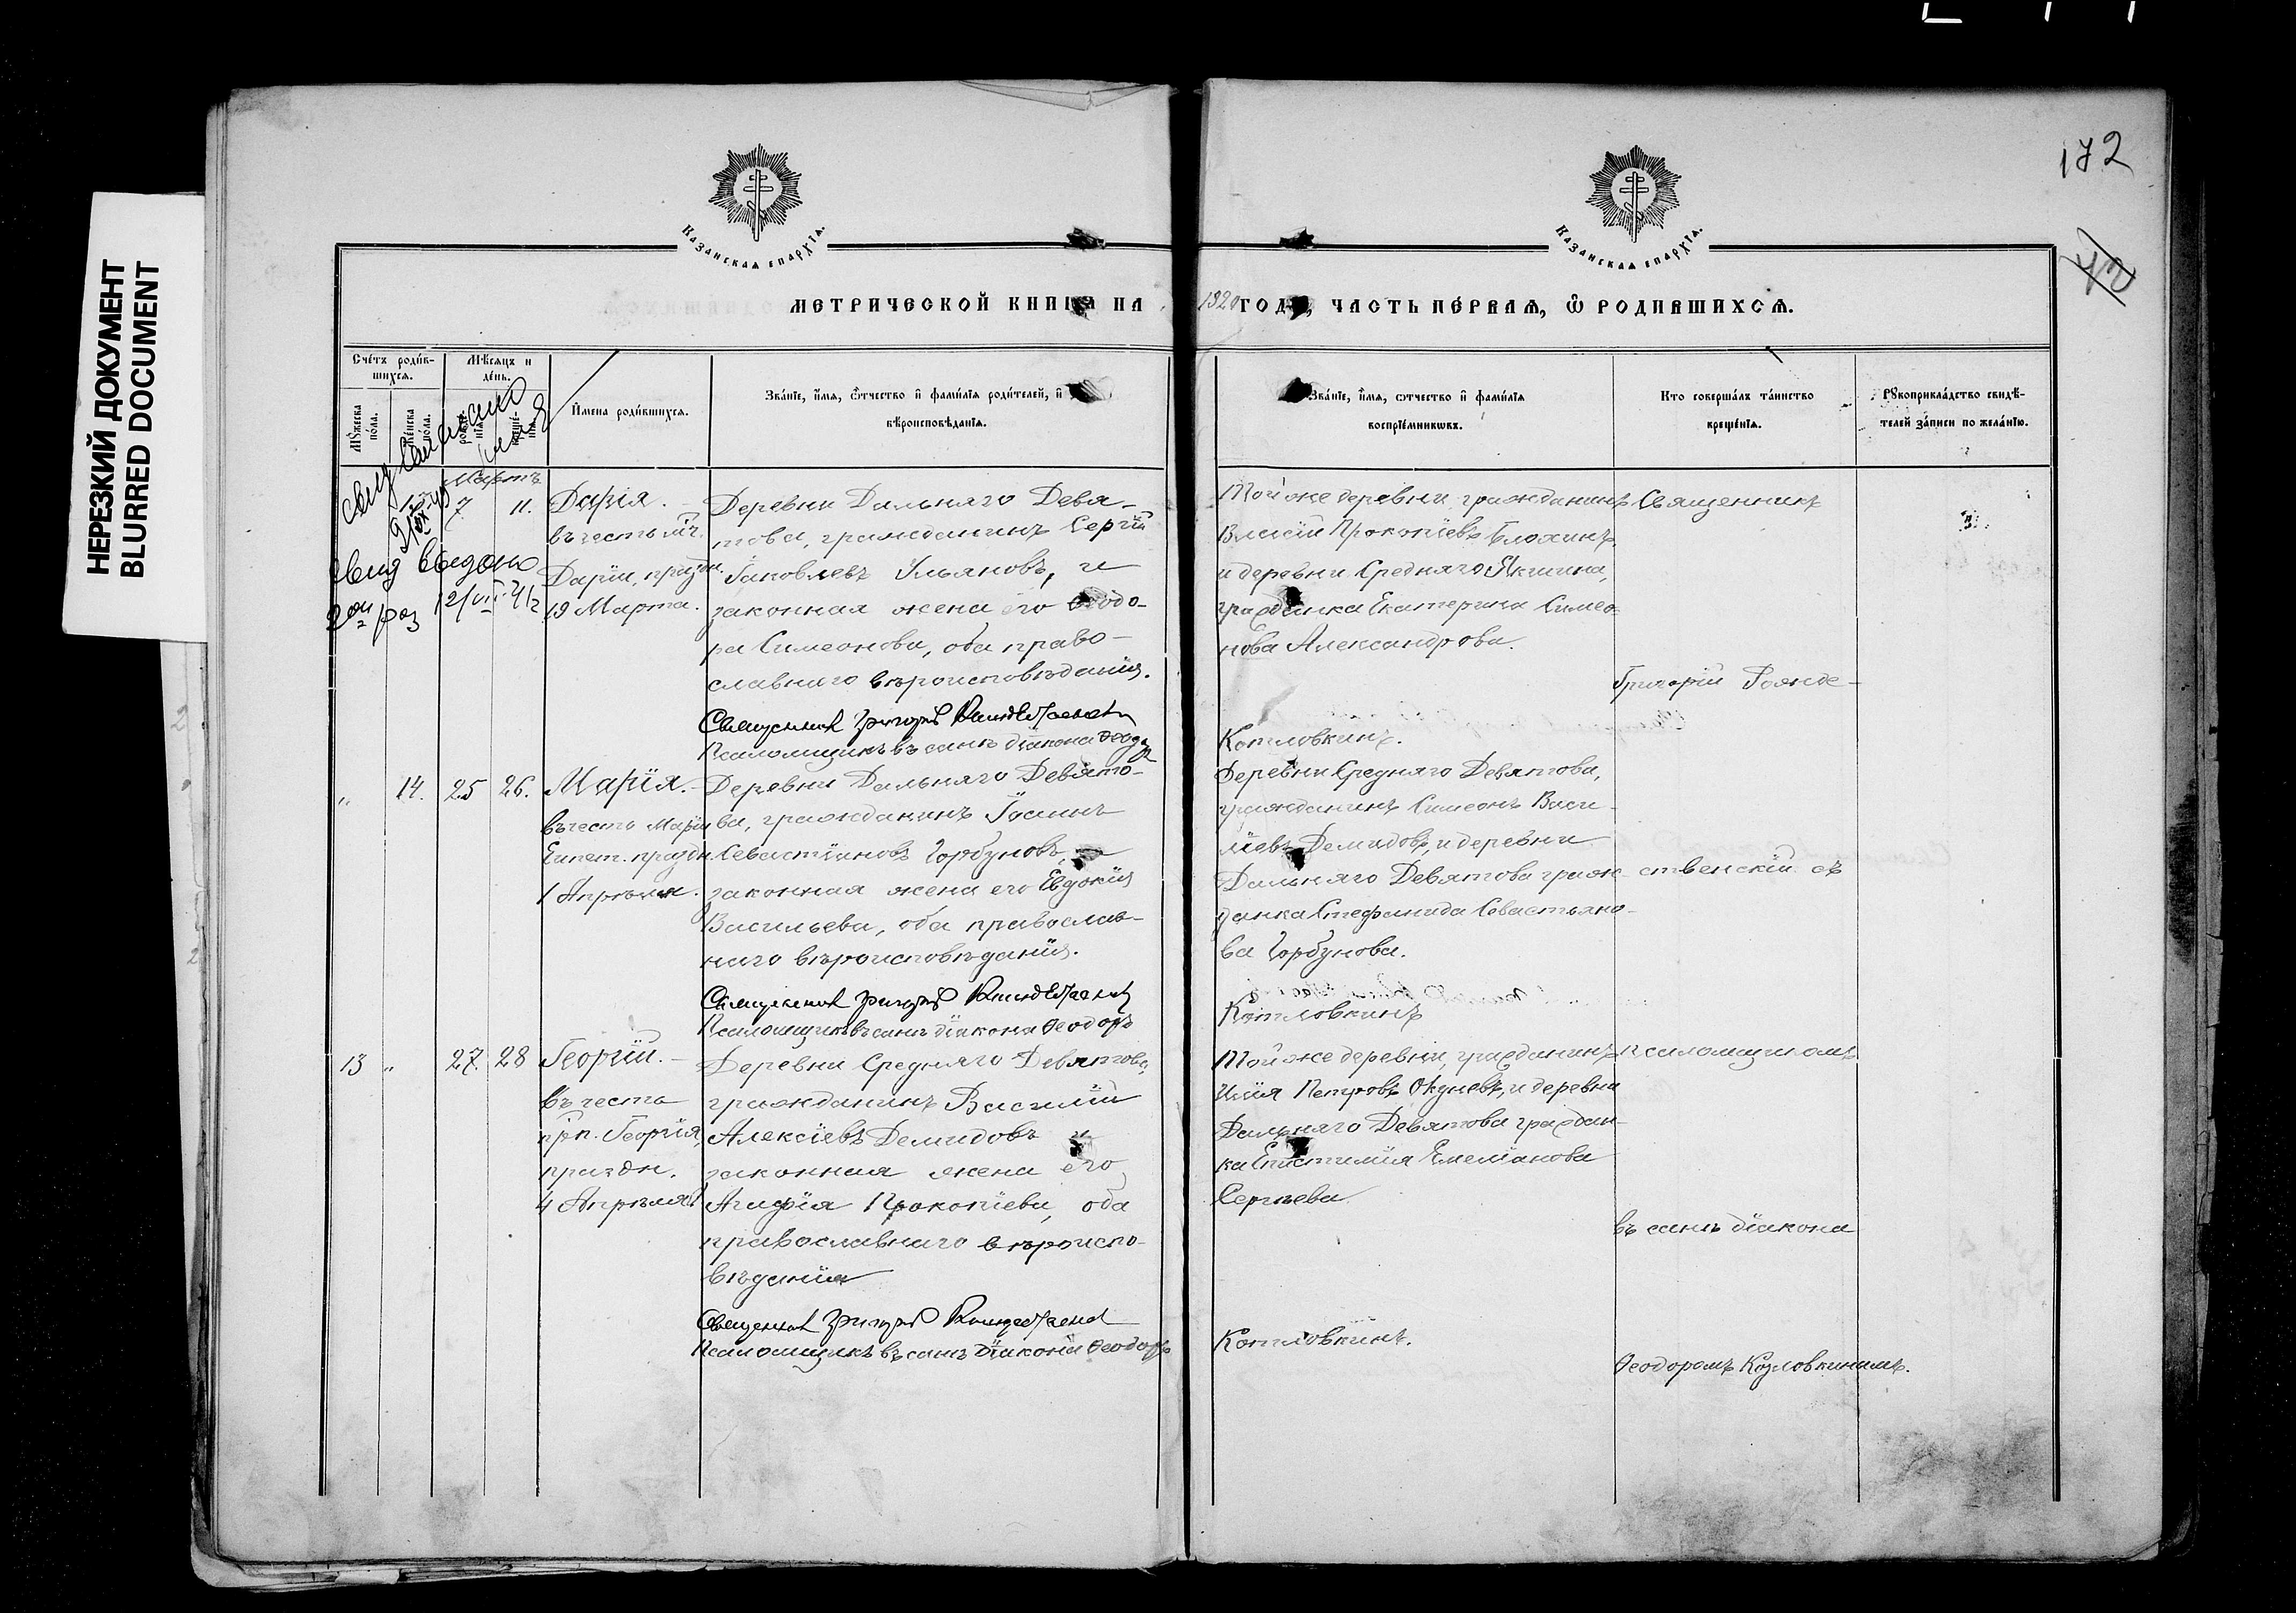 172
НЕРЕЗКИЙ ДОКУМЕНТ
BLURRED DOCUMENT
Казанская епархїѧ.
Казанская епархїѧ.
42
МЕТРИЧЕСКОЙ КНИГИ НА 1920 ГОДЪ, ЧАСТЬ ПЕ́РВАѦ, Ѡ҆ РОДИВШИХСѦ.
Сче́тъ роди́в-
шихсѧ.
Мѣ́сѧцъ и
де́нь.
Мꙋ́жеска
по́ла.
Же́нска
по́ла.
Имена роди́вшихсѧ.
Зва́нїе, и́мѧ, ѻ́тчество и҆ фами́лїѧ роди́телей, и҆
вѣроисповѣ́данїѧ.
Зва́нїе, и́мѧ, ѻтчество и҆ фами́лїѧ
воспрїе́мниковъ.
Кто соверша́лъ та́инство
креще́нїѧ.
Рꙋкоприкла́дство свидѣ́-
телей за́писи по жела́нїю.
Мартъ
7
11.
Дарія.
въ честь мч.
Даріи, праздн.
19 Марта.
Свид выдано
2ой раз
Деревни Дальняго Девя-
това, гражданинъ Сергій
Іаковлевъ Ульяновъ, и
законная жена его Ѳеодо-
ра Симеонова, оба право-
славнаго вѣроисповѣданія.
Священник Григорий
Псаломщикъ въ санѣ діакона Ѳеодоръ
Той же деревни гражданинъ
Власій Прокопіевъ Блохинъ,
и деревни Средняго Якшина,
граждынка Екатерина Симео-
нова Александрова.
Котловкинъ.
Священникъ
Григорій Рожде-
„
14.
25
26.
Марія.
въ честь Маріи
Египет. праздн.
1 Апрѣля.
Деревни Дальняго Девято-
ва, гражданинъ Іоаннъ
Севастіановъ Горбуновъ, и
законная жена его Евдокія
Васильева, оба православ-
наго вѣроисповѣданія.
Священник Григорий
Псаломщикъ въ санѣ діакона Ѳеодоръ
Деревни Средняго Девятова,
гражданинъ Симеонъ Васи-
ліевъ Демидовъ, и деревни
Дальняго Девятова граж-
данка Стефанида Севастьяно-
ва Горбунова.
Котловкинъ
ственскій съ
13
„
27.
28
Георгій.
въ честь
прп. Георгія,
праздн.
4 Апрѣля
Деревни Средняго Девятова,
гражданинъ Василій
Алексіевъ Демидовъ и
законная жена его
Агафія Прокопіева, оба
православнаго вѣроиспо-
вѣданія
Священник Григорий
Псаломщикъ въ санѣ діакона Ѳеодоръ
Той же деревни, гражданинъ
Илія Петровъ Окуневъ, и деревни
Дальняго Девятова граждан-
ка Епистимія Емеліанова
Сергѣева
Котловкинъ.
псаломщикомъ
въ санѣ діакона
Ѳеодоромъ Козловкинимъ.